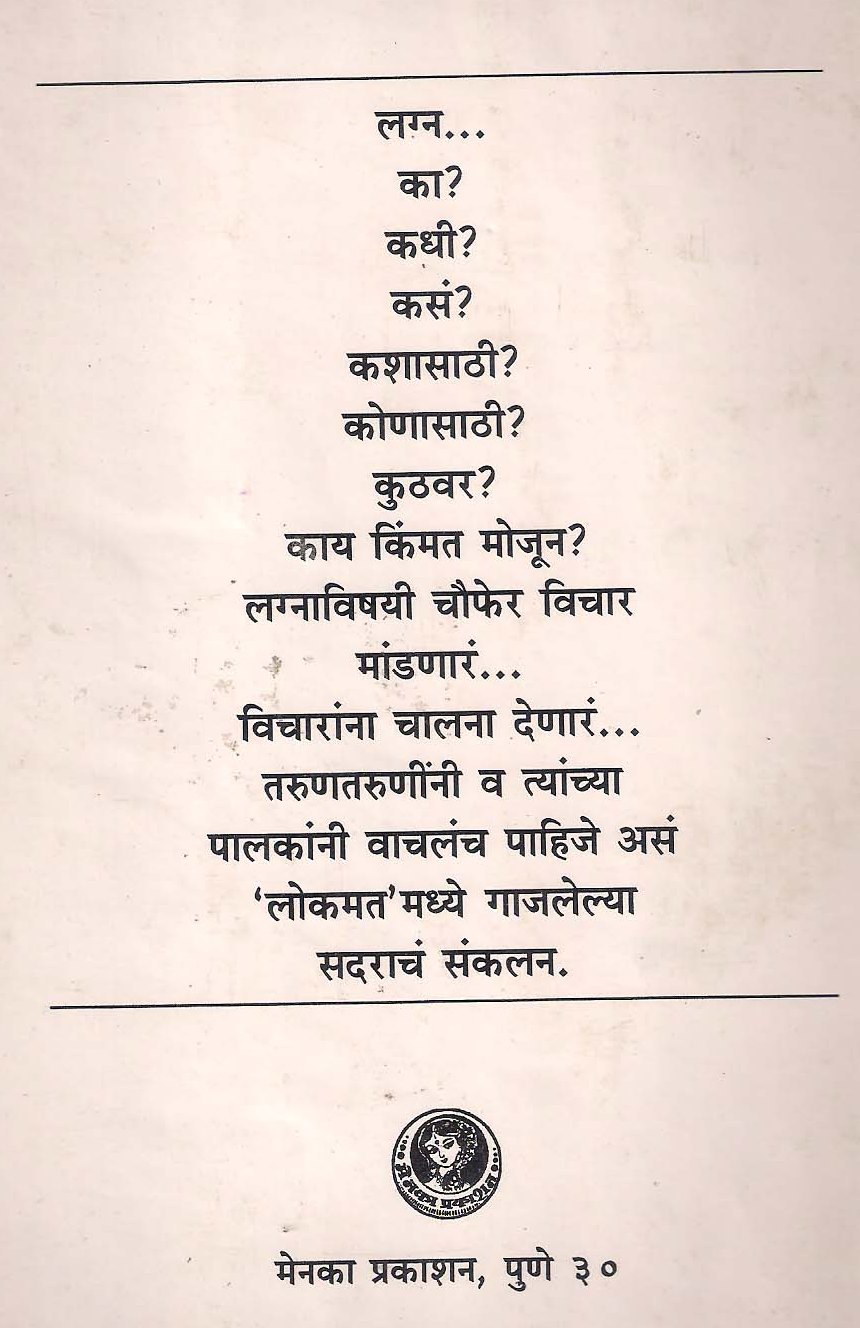 लग्न...
का?
कधी?
कसं?
कशासाठी?
कोणासाठी?
कुठवर?
काय किंमत मोजून?
लग्नाविषयी चौफेर विचार
मांडणारं...
विचारांना चालना देणारं...
तरुणतरुणींनी व त्यांच्या
पालकांनी वाचलंच पाहिजे असं
‘लोकमत’मध्ये गाजलेल्या
सदराचं संकलन.
मेनका प्रकाशन
मेनका प्रकाशन, पुणे ३०